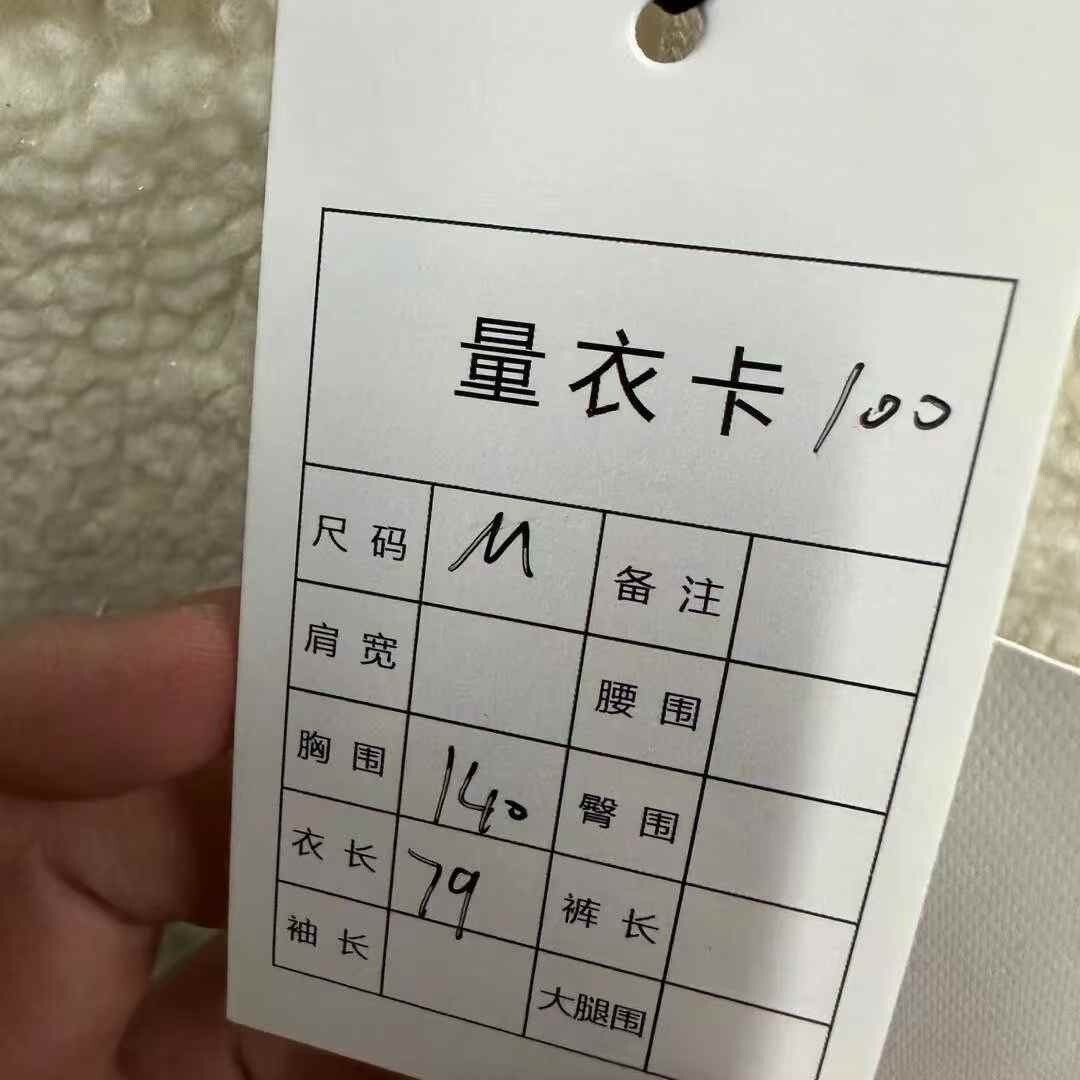 量衣卡 100
尺码 M 备注
肩宽 腰围
胸围 140 臀围
衣长 79 裤长
袖长 大腿围